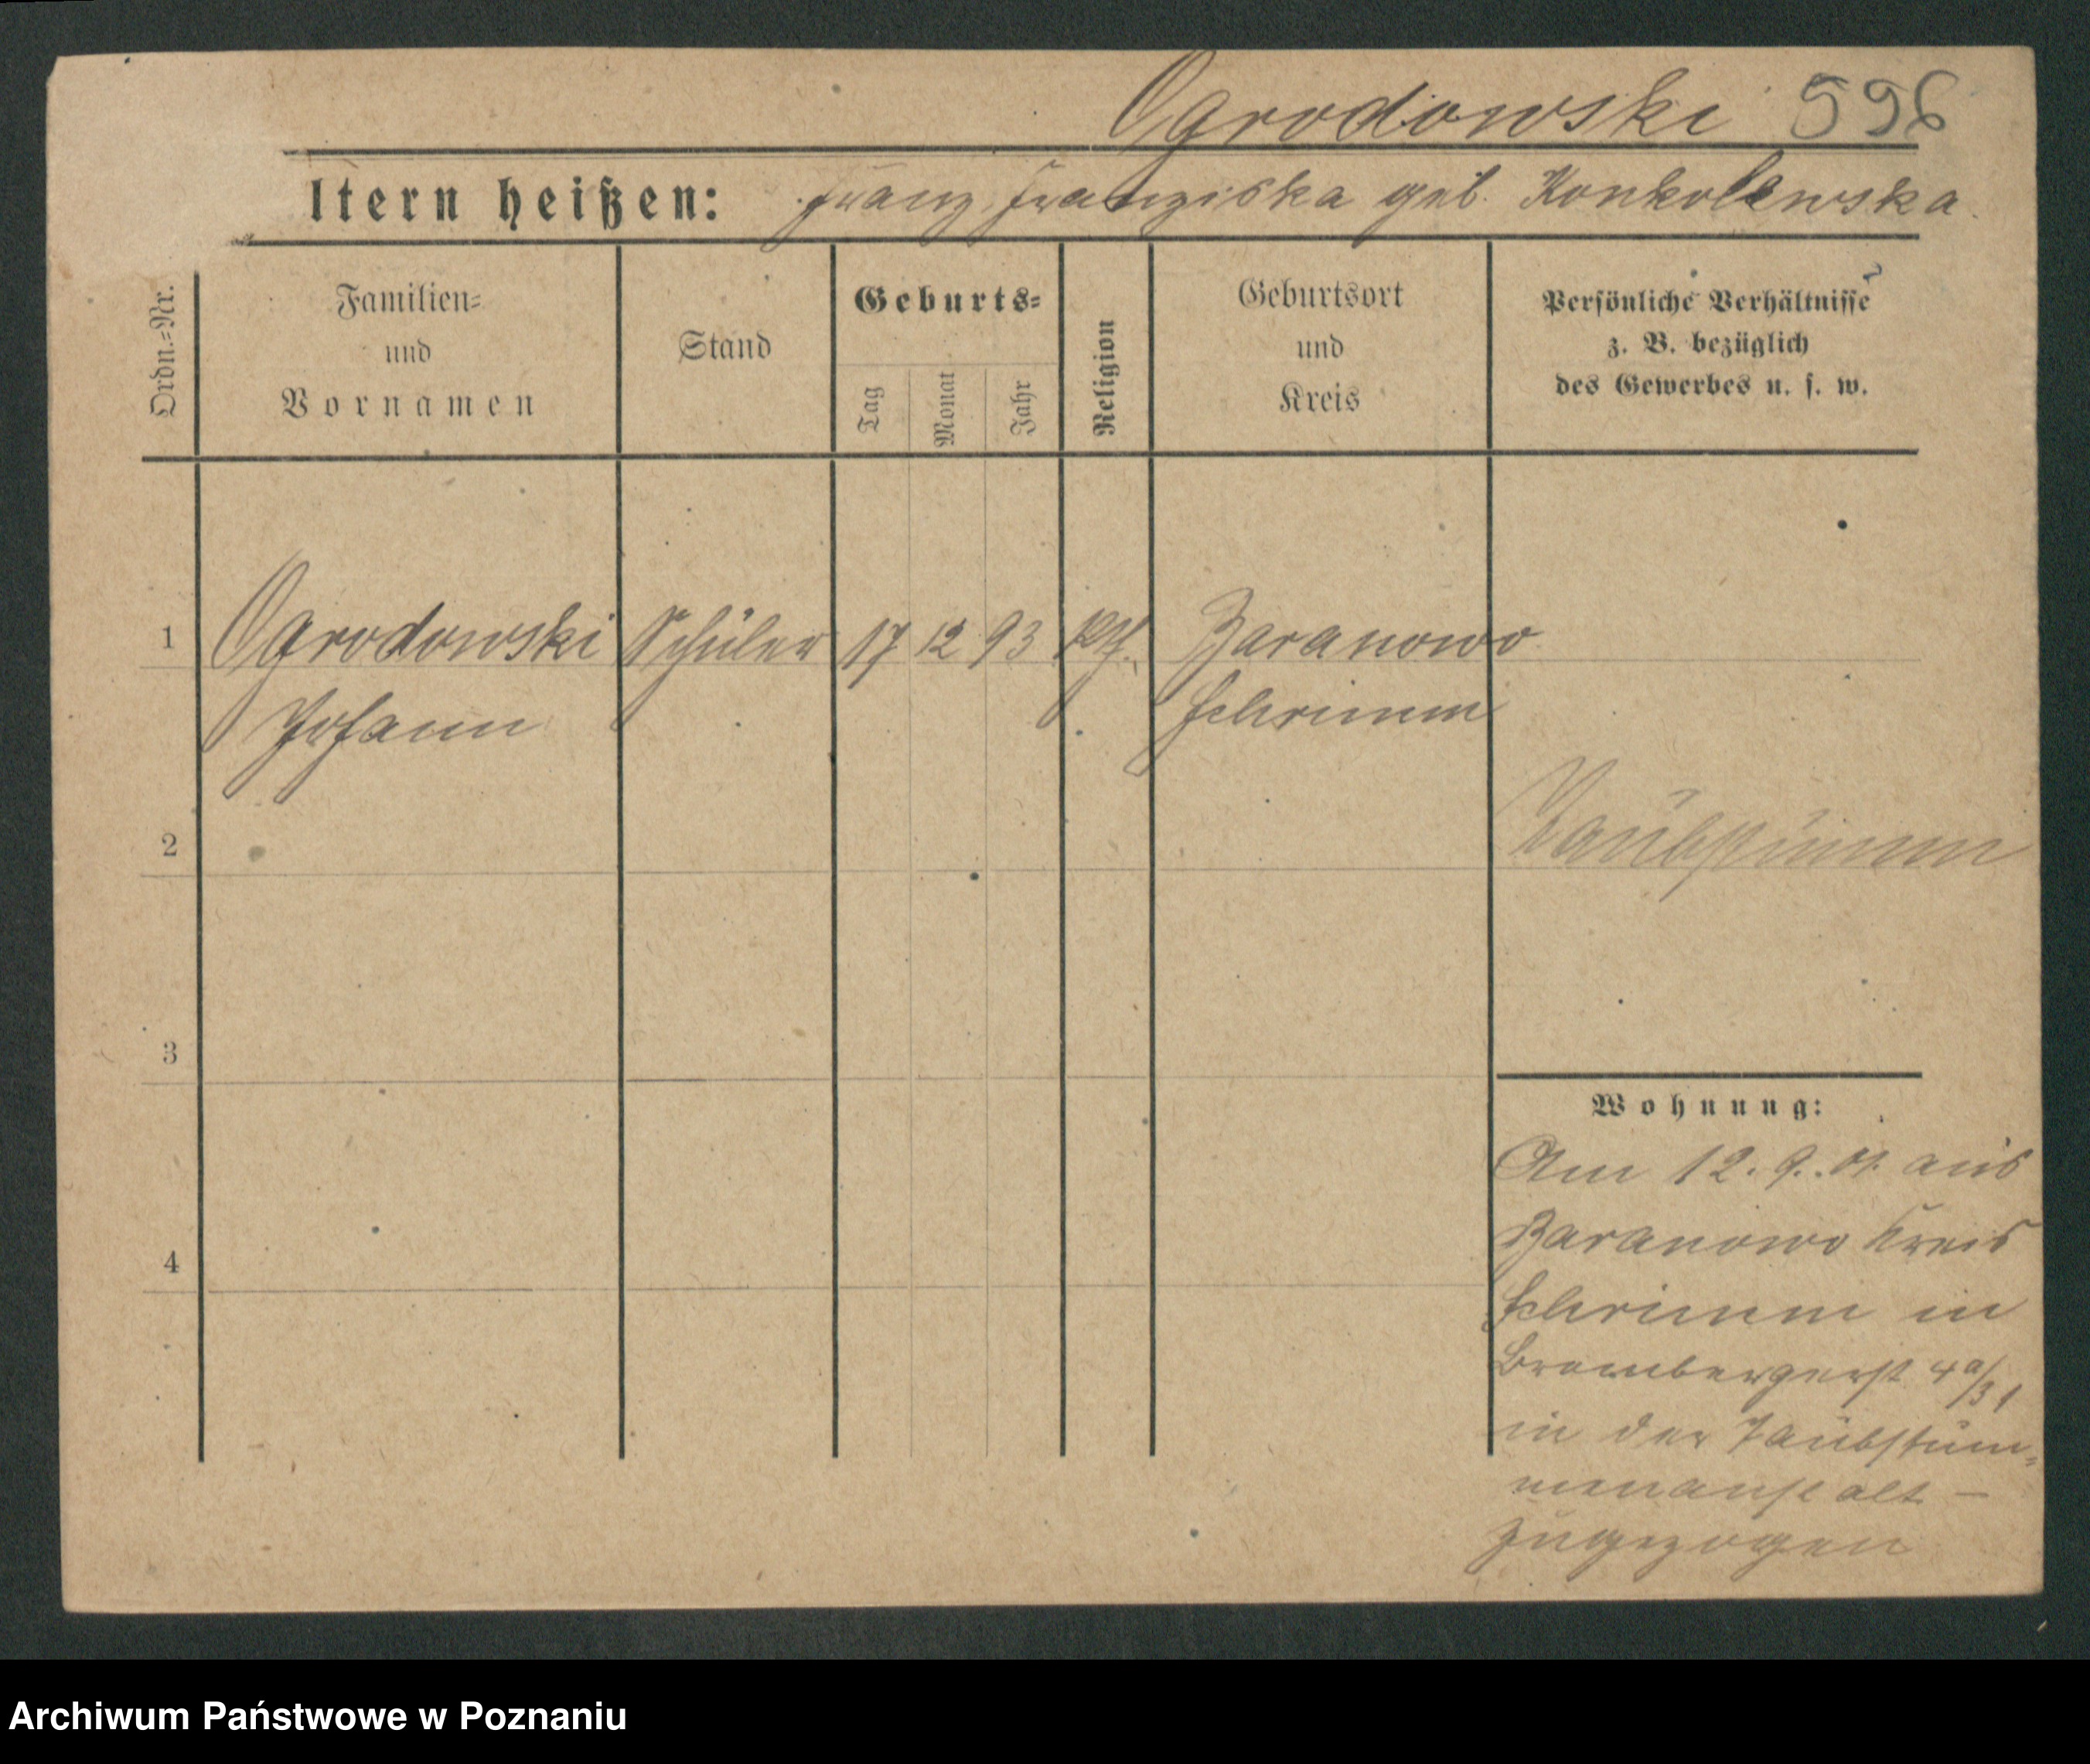 Ogrodowski 596
ltern heißen: Franz, Franziska geb. Konkolewska
Ordn.=Nr.
Familien=
und
Vornamen
Stand
Geburts=
Tag
Monat
Jahr
Religion
Geburtsort
und
Kreis
Persönliche Verhältnisse
z. B. bezüglich
des Gewerbes u. s. w.
1 Ogrodowski Schüler 17 12 93 kth. Baranowo
Johann Schrimm
Taubstumm
2
3
4
Wohnung:
Am 12. 9. 01. aus
Baranowo Kreis
Schrimm in
Brombergerst 4a/31
in der Taubstum=
menanstalt –
zugezogen
Archiwum Państwowe w Poznaniu